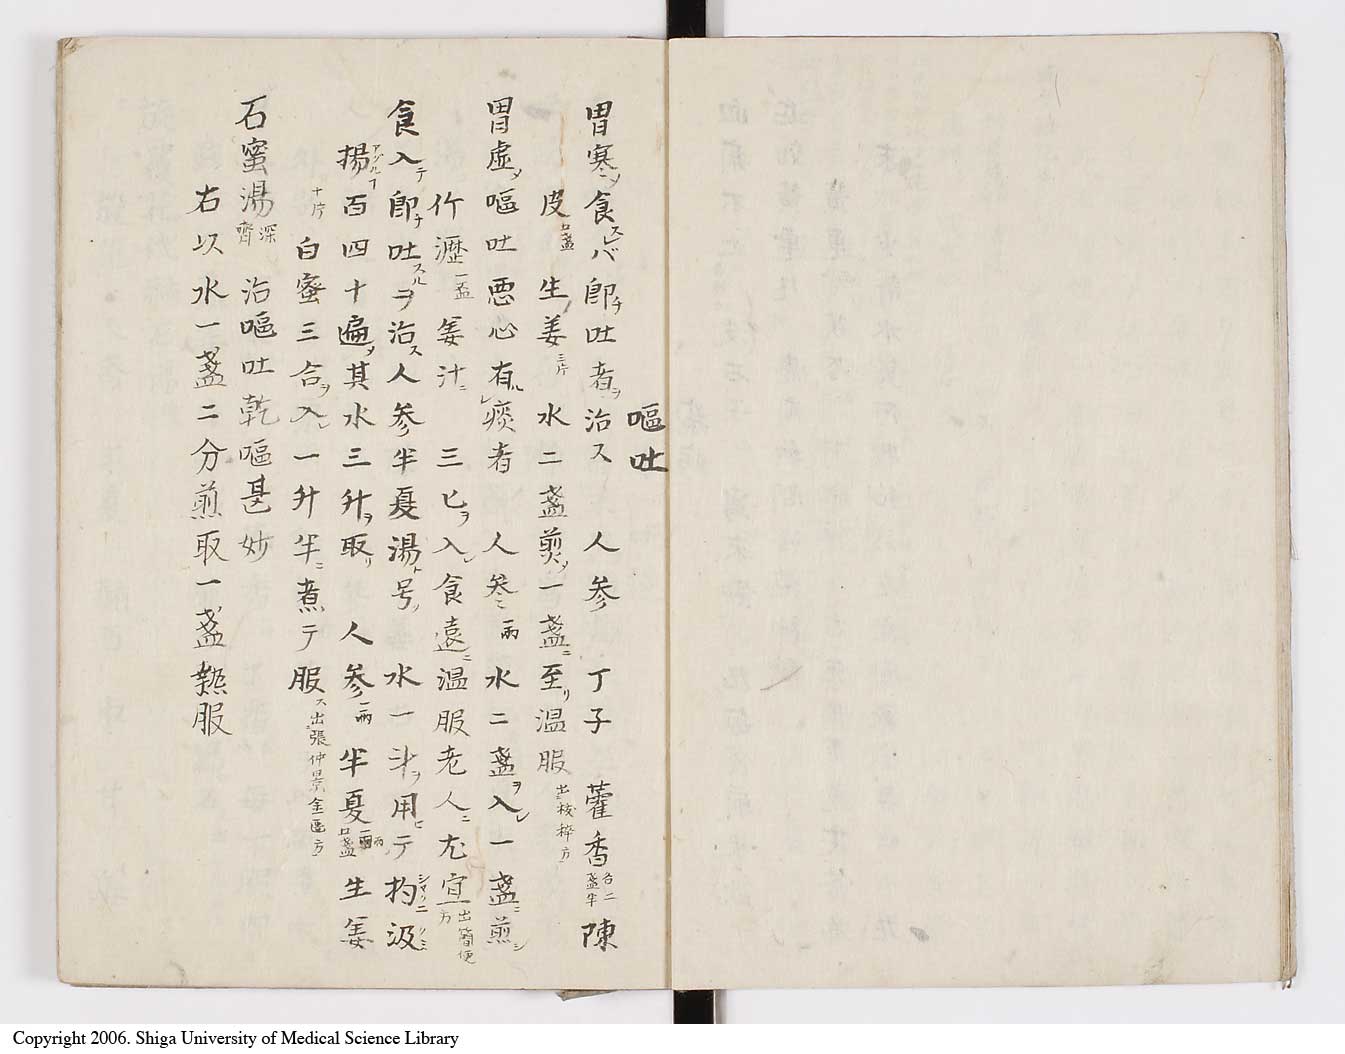 嘔吐
胃寒ノ食スレバ即チ吐者ヲ治ス 人参 丁子 藿香各二盞半 陳
皮 生ノ姜三片 水二盞煎ノ一盞ニ至リ温服
胃虚ノ嘔吐悪心有レ痰者 人参二両 水二盞ヲ入レ一盞ニ煎シ
竹瀝一盃 姜汁ニ 三匕ヲ入レ食遠ニ温服老人ニ尤宜出簡便方
食入テ即チ吐スルヲ治ス人参半夏湯ト号ノ 水一斗ヲ用ヒテ杓
揚アグルヿ百四十遍ノ其水三升ヲ取リ 人参一両 半夏 生姜
十片 白蜜三合ヲ入レ一升半ニ煮テ服ス出張仲景金匱方
石蜜湯深齊 治嘔吐乾嘔甚妙
右以水一盞二分煎取一盞熱服
Copyright 2006. Shiga University of Medical Science Library